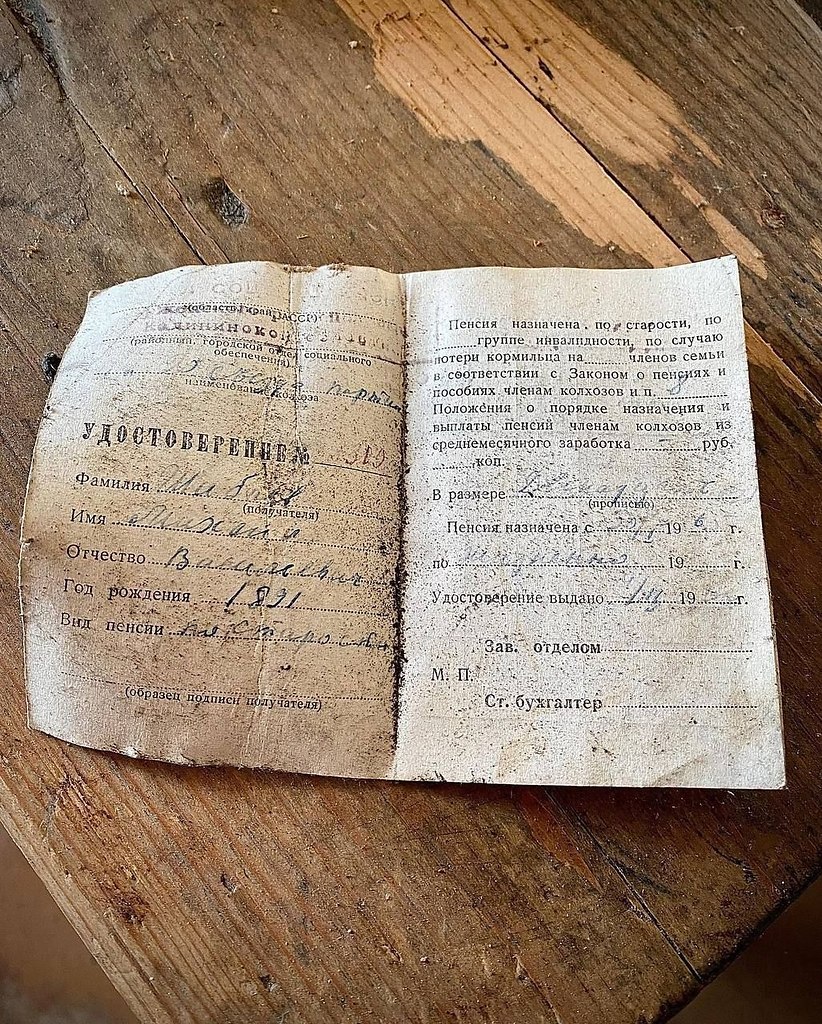 (область, край, АССР)
(районный, городской отдел социального
обеспечения)
наименование колхоза
УДОСТОВЕРЕНИЕ №
Фамилия
(получателя)
Имя Михаил
Отчество Васильевич
Год рождения 1891
Вид пенсии по старости
(образец подписи получателя)
Пенсия назначена по старости, по
группе инвалидности, по случаю
потери кормильца на членов семьи
в соответствии с Законом о пенсиях и
пособиях членам колхозов и п. 8
Положения о порядке назначения и
выплаты пенсий членам колхозов из
среднемесячного заработка руб.
коп.
В размере
(прописью)
Пенсия назначена с 19 6 г.
по 19 г.
Удостоверение выдано 19 г.
Зав. отделом
М. П.
Ст. бухгалтер